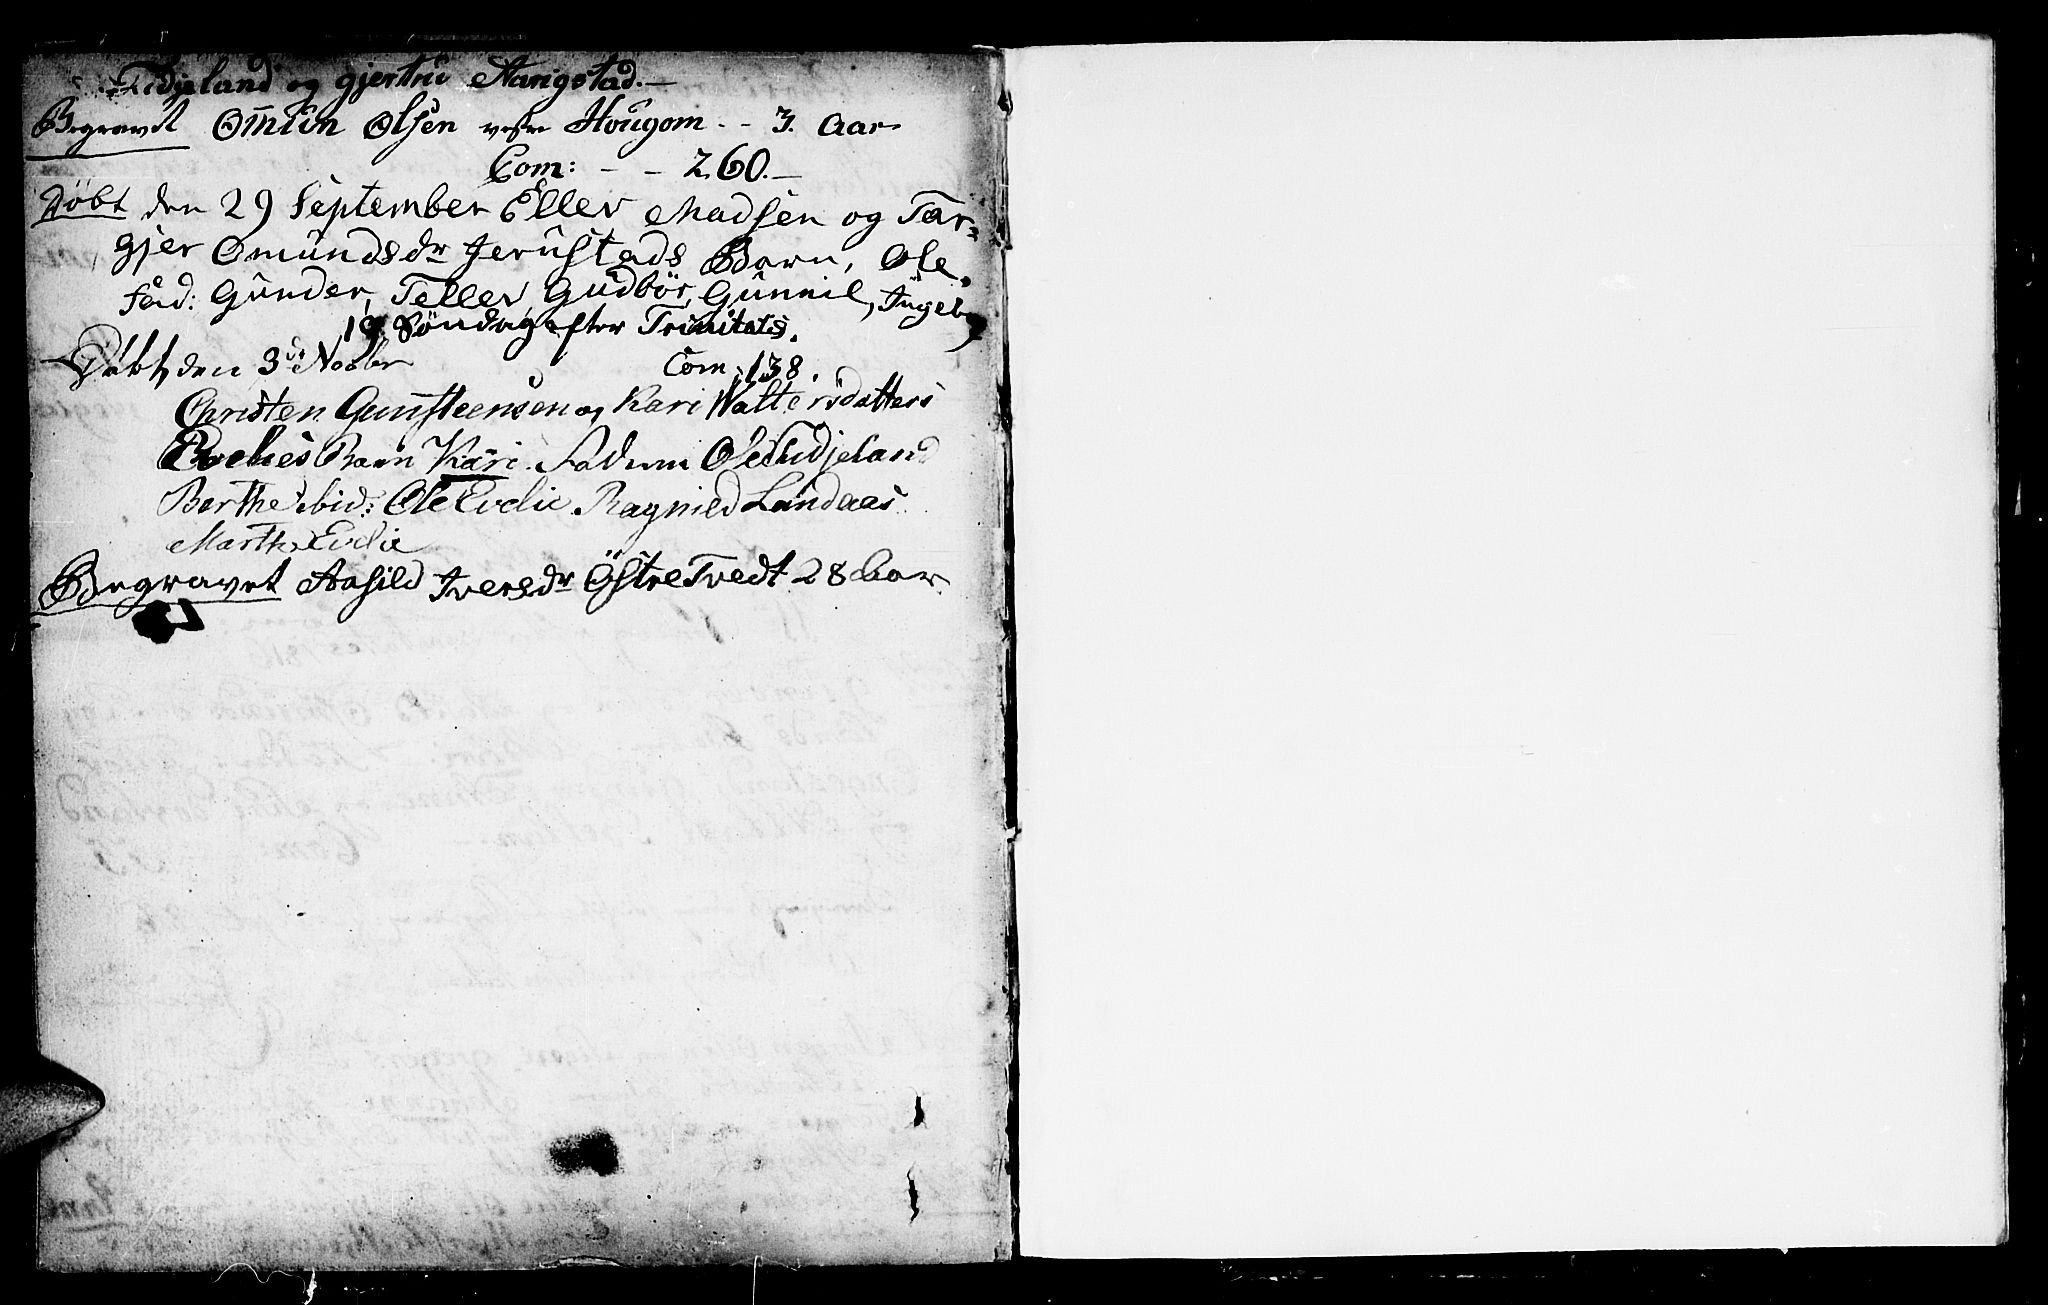 Fidjeland og gjertru Aarigstad.—
Begravet Omun Olsen vestre Hougom - - 3. Aar
Com: - - 260.—
Døbt den 29 September Eller Madsen og Tar=
gjer Omundsdr Jerustads Barn, Ole.
Fad: Gunder, Tellev, Gudbør, Gunnil, Ingebor
19 Søndag efter Trinitatis.
Døbt, den 3de Novbr Com: 138.
Christen Gunsteensen og Kari Waltersdatters
Evelies Barn Kari. Faderne Ole Fidjeland
Berthe ibid: Ole Evelie. Ragnild Landaas
Marthe Evelie
Begravet Aasild Iversdr Østre Tvedt 28 Aar